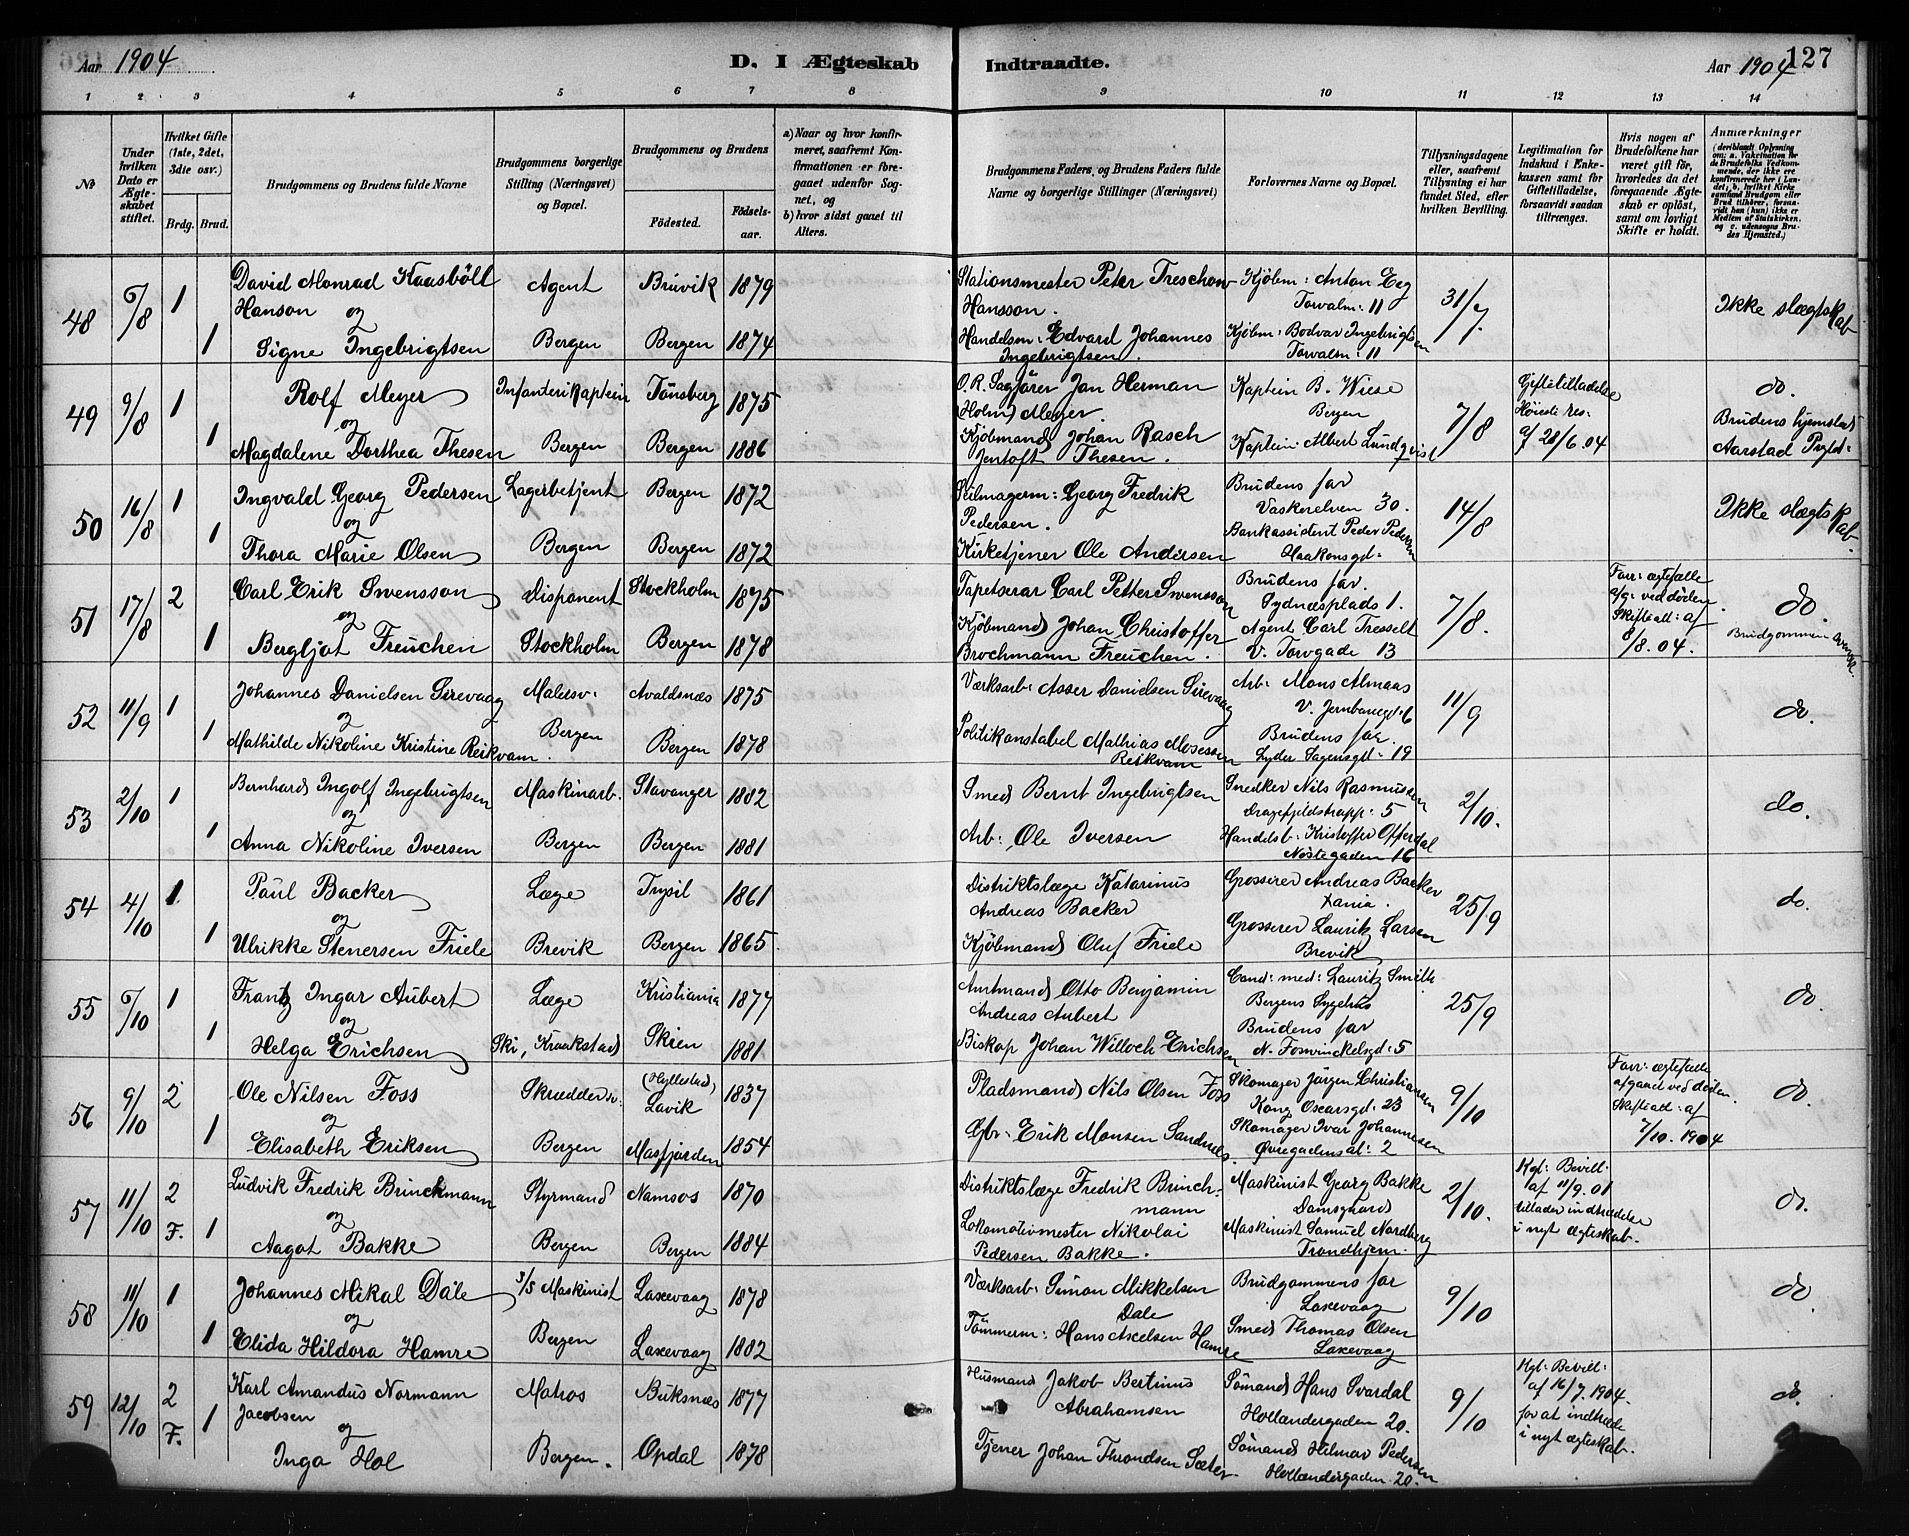 Aar 1904
D. I Ægteskab Indtraadte.
Aar 1904
127
1 2 3 4 5 6 7 8 9 10 11 12 13 14
No
Under hvilken Dato er Ægteskabet stiftet.
Hvilket Gifte (1ste, 2det, 3die osv.)
Brdg. Brud.
Brudgommens og Brudens fulde Navne
Brudgommens borgerlige Stilling (Næringsvei) og Bopæl.
Brudgommens og Brudens
Fødested. Fødselsaar.
a) Naar og hvor konfirmeret, saafremt Konfirmationen er foregaaet udenfor Sognet, og
b) hvor sidst gaaet til Alters.
Brudgommens Faders, og Brudens Faders fulde Navne og borgerlige Stillinger (Næringsvei)
Forlovernes Navne og Bopæl.
Tillysningsdagene eller, saafremt Tillysning ei har fundet Sted, efter hvilken Bevilling.
Legitimation for Indskud i Enkekassen samt for Giftetilladelse, forsaavidt saadan tiltrænges.
Hvis nogen af Brudefolkene har været gift før, hvorledes da det foregaaende Ægteskab er opløst, samt om lovligt Skifte er holdt.
Anmærkninger (deriblandt Oplysning om: a. Vakcination for de Brudefolks Vedkommende, der ikke ere konfirmerede her i Landet; b. hvilket Kirkesamfund Brudgom eller Brud tilhører, forsaavidt han (hun) ikke er Medlem af Statskirken, og c. udensogns Brudes Hjemsted.)
48 6/8 1 David Monrad Kaasbøll Agent Bruvik 1879 Stationsmester Peter Treschow Kjøbm: Anton Eeg 31/7. Ikke slægtskab
Hanson og Hansson. Torvalm: 11
1 Signe Ingebrigtsen Bergen Bergen 1874 Handelsm: Edvard Johannes Kjøbm: Bodvar Ingebrigtsen
Ingebrigtsen. Torvalm: 11
49 9/8 1 Rolf Meyer Infanterikaptein Tønsberg 1875 O.R. Sagfører Jan Herman Kaptein B. Wiese 7/8 Giftetilladelse do.
og (Holm) Meyer. Bergen Høieste res: Brudens hjemsted
1 Magdalene Dorthea Thesen Bergen Bergen 1886 Kjøbmand Johan Rasch Kaptein Albert Lundqvist af 28/6.04 Aarstad Prgld:
Jentoft Thesen.
50 16/8 1 Ingvald Georg Pedersen Lagerbetjent Bergen 1872 Seilmagerm: Georg Fredrik Brudens far 14/8 Ikke slægtskab.
og Pedersen. Vaskerelven 30.
1 Thora Marie Olsen Bergen Bergen 1872 Kirketjener Ole Andersen Bankassistent Peder Pedersen
Haakonsgd:
51 17/8 2 Carl Erik Swensson Disponent Stockholm 1875 Tapetserar Carl Petter Swensson Brudens far 7/8. Forr: ægtefælle do.
og Sydnæsplads 1. afg: ved døden.
1 Bergljot Freuchen Stockholm Bergen 1878 Kjøbmand Johan Christoffer Agent Carl Tresselt Skifteatt: af Brudgommen svensk.
Brochmann Freuchen. V. Torvgade 13 8/8.04.
52 11/9 1 Johannes Danielsen Sirevaag Malersv: Avaldsnæs 1875 Værksarb: Asser Danielsen Sirevaag Arb: Mons Almaas 11/9 do.
og V. Jernbanegd: 6
1 Mathilde Nikoline Kristine Reikvam. Bergen Bergen 1878 Politikonstabel Mathias Mosessen Brudens far.
Reikvam Lyder Sagensgd: 19
53 2/10 1 Bernhard Ingolf Ingebrigtsen Maskinarb. Stavanger 1882 Smed Bernt Ingebrigtsen Snedker Nils Rasmussen 2/10. do.
og Dragefjeldstrapp: 5
1 Anna Nikoline Iversen Bergen Bergen 1881 Arb: Ole Iversen Handelsb: Kristoffer Offerdal
Nøstegaden 16
54 4/10 1 Paul Backer Læge Trysil 1861 Distriktslæge Katarinus Grosserer Andreas Backer 25/9 do.
og Andreas Backer Xania.
1 Ulrikke Stenersen Friele Brevik Bergen 1865. Kjøbmand Oluf Friele Grosserer Lauritz Larsen
Brevik
55 6/10 1 Frantz Ingar Aubert Læge Kristiania 1877 Amtmand Otto Benjamin Cand: med: Lauritz Smith 25/9 do.
og Andreas Aubert Bergens Sygehus
1 Helga Erichsen Ski, Kraakstad Skien 1881 Biskop Johan Willoch Erichsen Brudens far
N. Foswinckelsgd: 5
56 9/10 2 Ole Nilsen Foss Skræddersv: (Hyllestad) Lavik 1837 Pladsmand Nils Olsen Foss Skomager Jørgen Christiansen 9/10 Forr: ægtefælle do.
og Kong Oscarsgd: 23 afgaaet ved døden.
1 Elisabeth Eriksen Bergen Masfjorden 1854 Gbr: Erik Monsen Sandnes. Skomager Ivar Johannesen Skifteatt: af
Øvregadensal: 2 7/10. 1904
57 11/10 2 F. Ludvik Fredrik Brinchmann Styrmand Namsos 1870 Distriktslæge Fredrik Brinchmann Maskinist Georg Bakke 2/10. Kgl: Bevill: do.
og Damsgaard af 11/9.01
1 Aagot Bakke Bergen Bergen 1884 Lokomotivmester Nikolai Maskinist Samuel Nordberg tillader indtrædelse
Pedersen Bakke. Trondhjem. i nyt ægteskab.
58 11/10 1 Johannes Mikal Dale 3/5 Maskinist Laxevaag 1878 Værksarb: Simon Mikkelsen Brudgommens far 9/10 do.
og Dale Laxevaag
1 Elida Hildora Hamre Bergen Laxevaag 1882 Tømmerm: Hans Axelsen Hamre Smed Thomas Olsen
Laxevaag
59 12/10 2 F. Karl Amandus Normann Matros Buksnæs 1877 Husmand Jakob Bertinus Sømand Hans Svardal 9/10 Kgl: Bevill: do.
Jacobsen og Abrahamsen Hollændergaden 20. af 16/7. 1904.
1 Inga Hol Bergen. Opdal 1878 Tjener Johan Throndsen Sæter. Sømand Hilmar Pedersen for at indtræde
Hollændergaden 20. i nyt ægteskab.